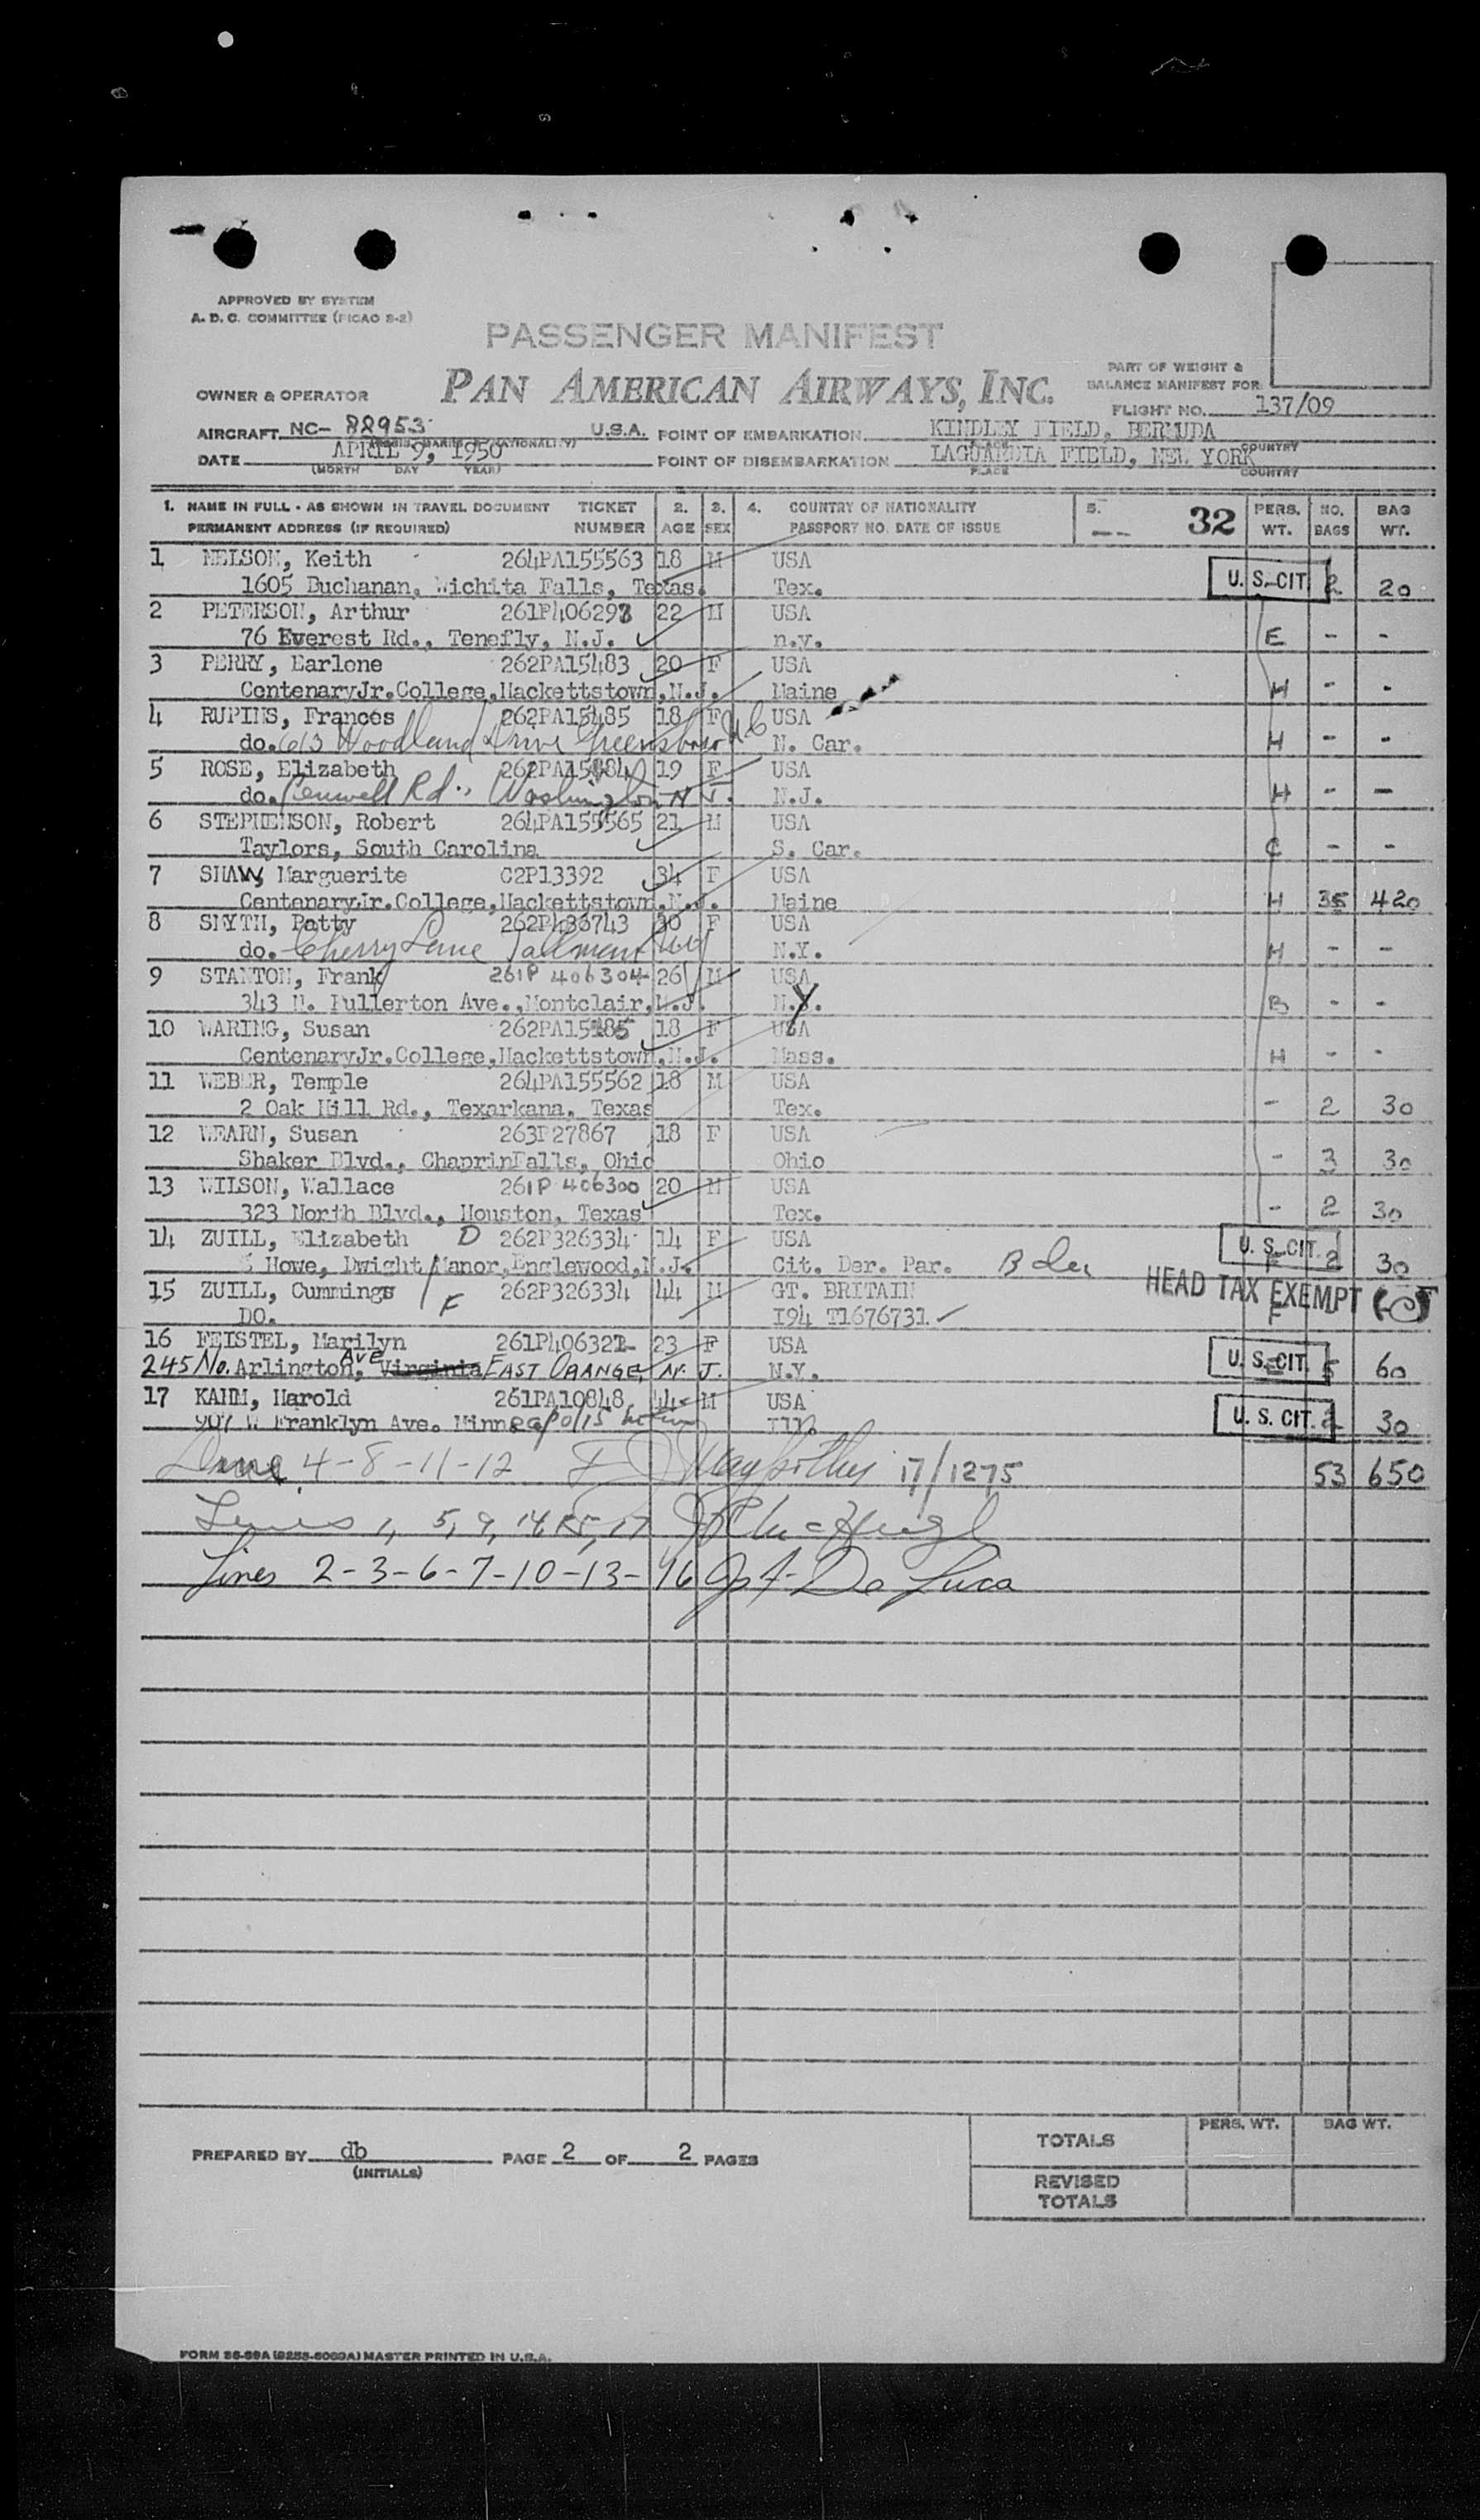 APPROVED BY SYSTEM
A. D. C. COMMITTEE (PICAO S-2)
PASSENGER MANIFEST
PAN AMERICAN AIRWAYS, INC.
PART OF WEIGHT &
BALANCE MANIFEST FOR
OWNER & OPERATOR
FLIGHT NO. 137/09
AIRCRAFT NC- 88953 U.S.A. POINT OF EMBARKATION KINDLEY FIELD, BERMUDA
PLACE COUNTRY
DATE APRIL 9, 1950 POINT OF DISEMBARKATION LAGUARDIA FIELD, NEW YORK
(MONTH DAY YEAR) PLACE COUNTRY
1. NAME IN FULL - AS SHOWN IN TRAVEL DOCUMENT TICKET 2. 3. 4. COUNTRY OF NATIONALITY 5. 32 PERS. NO. BAG
PERMANENT ADDRESS (IF REQUIRED) NUMBER AGE SEX PASSPORT NO. DATE OF ISSUE WT. BAGS WT.
1 NELSON, Keith 264PA155563 18 M USA
1605 Buchanan, Wichita Falls, Texas. Tex. U. S. CIT. 2 20
2 PETERSON, Arthur 261P406293 22 M USA
76 Everest Rd., Tenefly, N.J. n.y. E - -
3 PERRY, Earlone 262PA15483 20 F USA
CentenaryJr.College,Hackettstown,N.J. Maine H - -
4 RUPINS, Frances 262PA15485 18 F USA
do. 613 Woodland Drive Greensboro N.C N. Car. H - -
5 ROSE, Elizabeth 262PA15484 19 F USA
do. Rd., Washington N.J. N.J. H - -
6 STEPHENSON, Robert 264PA155565 21 M USA
Taylors, South Carolina S. Car. C - -
7 SHAW, Marguerite C2P13392 34 F USA
CentenaryJr.College,Hackettstown,N.J. Maine H 35 420
8 SMYTH, Patty 262P436743 30 F USA
do. Cherry Lane N.Y. H - -
9 STANTON, Frank 261P 406304 26 M USA
343 N. Fullerton Ave.,Montclair,N.J. N.Y. B - -
10 WARING, Susan 262PA15485 18 F USA
CentenaryJr.College,Hackettstown,N.J. Mass. H - -
11 WEBER, Temple 264PA155562 18 M USA
2 Oak Hill Rd., Texarkana, Texas Tex. - 2 30
12 WEARN, Susan 263P27867 18 F USA
Shaker Blvd., ChaprinFalls, Ohio Ohio - 3 30
13 WILSON, Wallace 261P 406300 20 M USA
323 North Blvd., Houston, Texas Tex. - 2 30
14 ZUILL, Elizabeth D 262P326334 14 F USA U. S. CIT.
Howe, Dwight Manor,Englewood,N.J. Cit. Der. Par. F 2 30
15 ZUILL, Cummings F 262P326334 44 M GT. BRITAIN HEAD TAX EXEMPT
DO. I94 T1676731 F
16 FEISTEL, Marilyn 261P406322 23 F USA U. S. CIT.
245 No. Arlington Ave, Virginia EAST ORANGE, N. J. N.Y. 5 60
17 KAHM, Harold 261PA10848 44 M USA
907 W Franklyn Ave. Minneapolis Ill. U. S. CIT. 2 30
4-8-11-12 17/1275 53 650
Lines 1, 5, 9, 14, 15, 17
Lines 2-3-6-7-10-13-16 De Luca
PERS. WT. BAG WT.
TOTALS
PREPARED BY db PAGE 2 OF 2 PAGES
(INITIALS)
REVISED
TOTALS
FORM 36-69A (9255-6069A) MASTER PRINTED IN U.S.A.